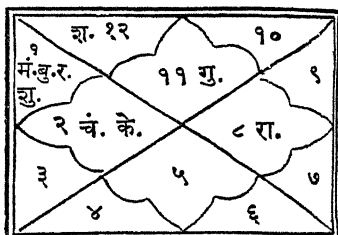 श. १२
१०
१
मं. बु. र.
शु.
११ गु.
९
२ चं. के.
८ रा.
३
५
७
४
६